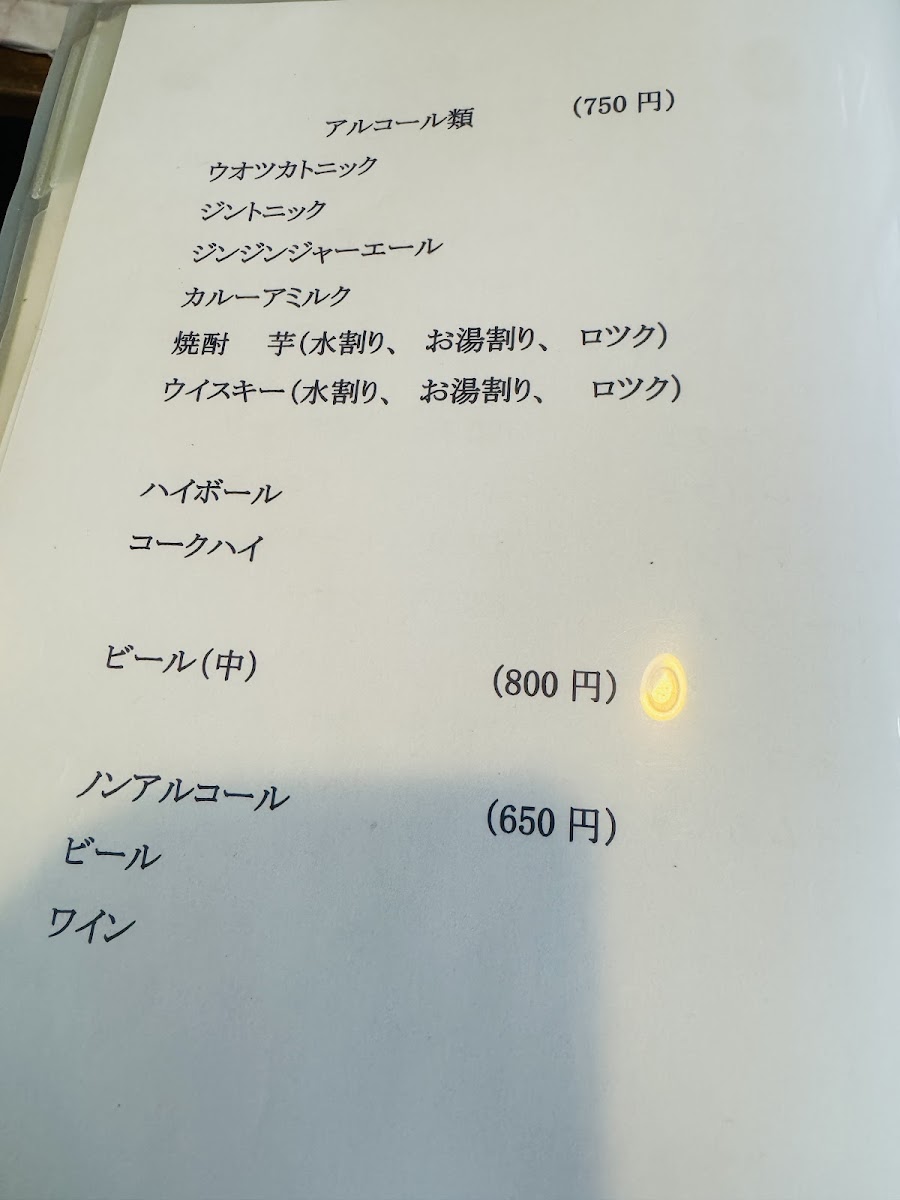 アルコール類 (750 円)
ウオツカトニック
ジントニック
ジンジンジャーエール
カルーアミルク
焼酎 芋(水割り、 お湯割り、 ロツク)
ウイスキー(水割り、 お湯割り、 ロツク)
ハイボール
コークハイ
ビール(中) (800 円)
ノンアルコール (650 円)
ビール
ワイン